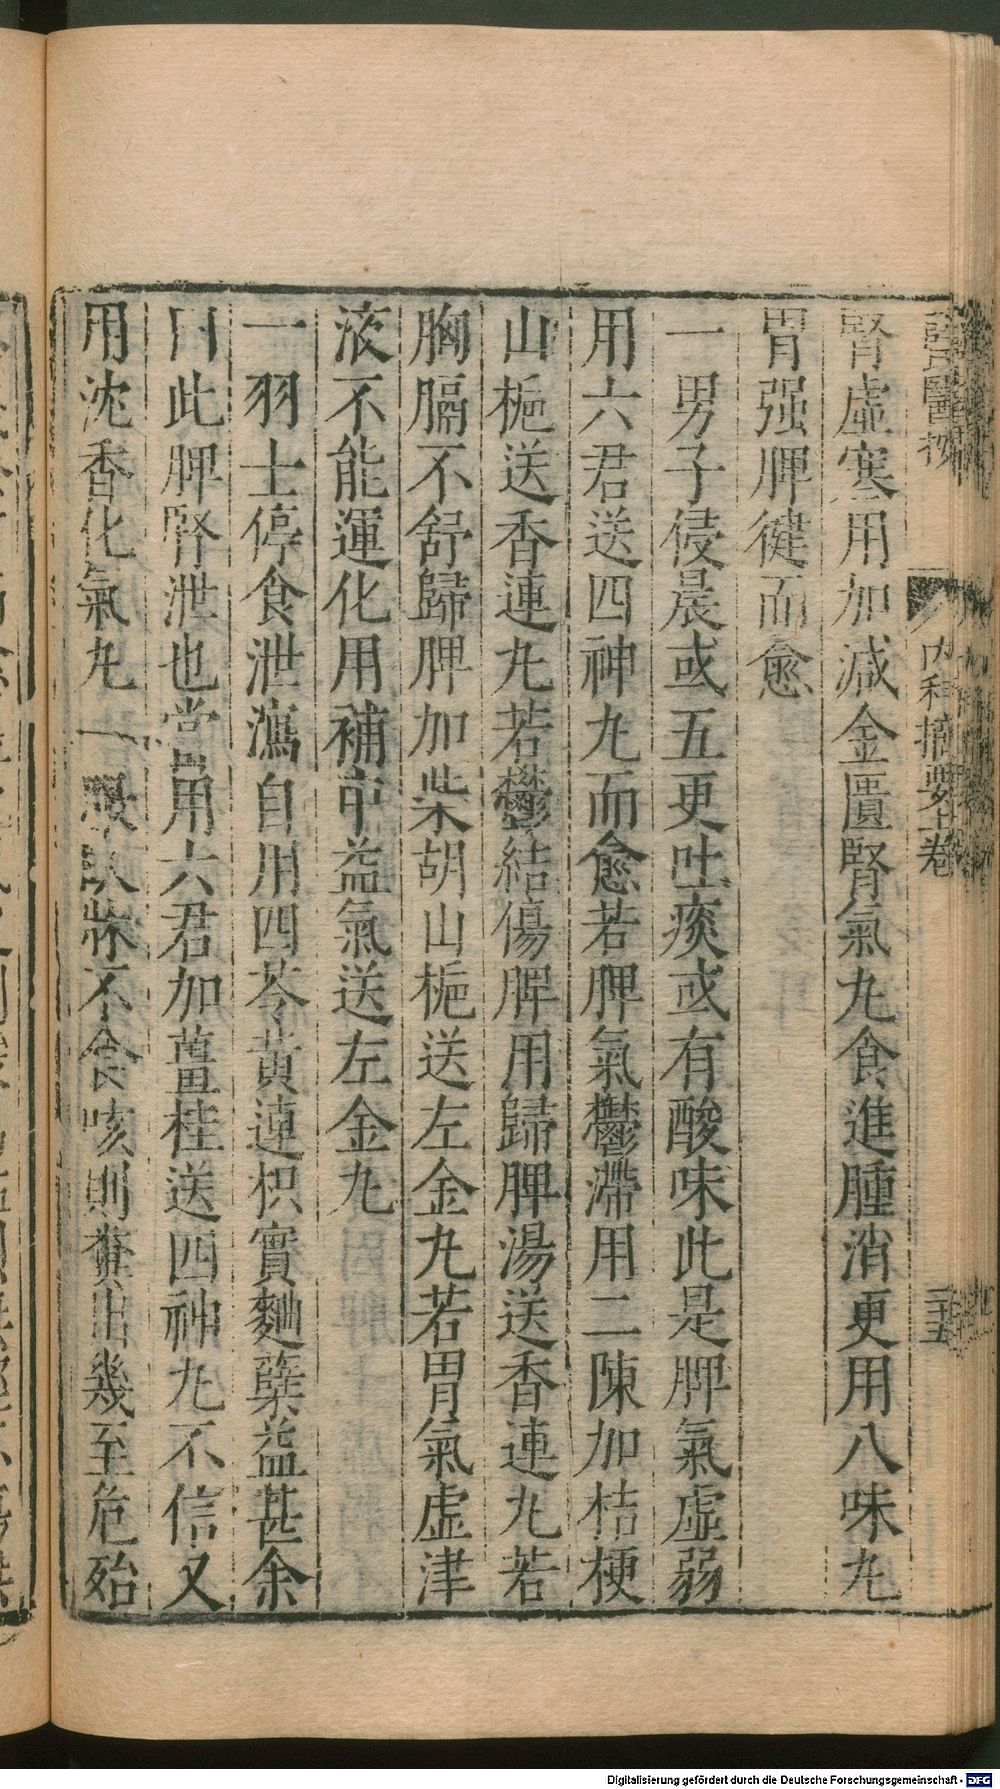 薛氏醫按 内科摘要上卷 二十五
腎虛寒用加減金匱腎氣九食進腫消更用八味九
胃强脾健而愈
一男子侵晨或五更吐痰或有酸味此是脾氣虛弱
用六君送四神九而愈若脾氣鬱滯用二陳加桔梗
山梔送香連九若鬱結傷脾用歸脾湯送香連九若
胸膈不舒歸脾加柴胡山梔送左金九若胃氣虛津
液不能運化用補中益氣送左金九
一羽士停食泄瀉自用四苓黄連枳實麯蘖益甚余
曰此脾腎泄也當用六君加薑桂送四神九不信又
用沈香化氣九一服臥牀不食咳則糞出幾至危殆
Digitalisierung gefördert durch die Deutsche Forschungsgemeinschaft - DFG